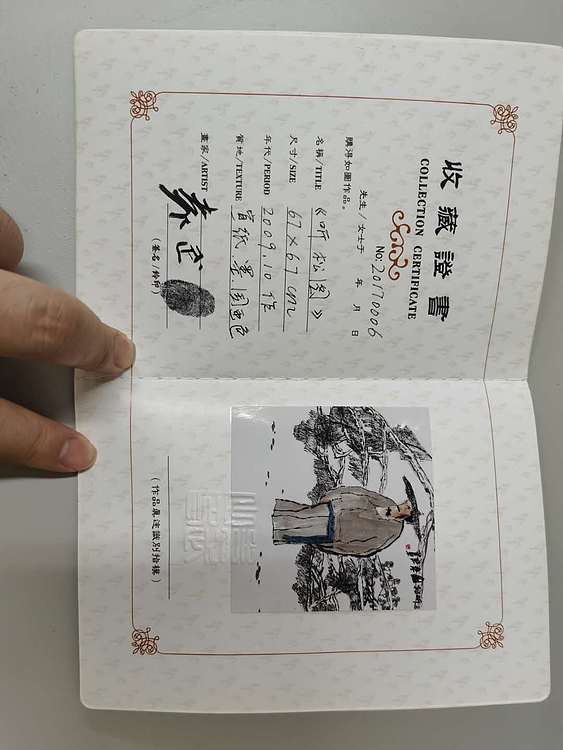 收藏證書
COLLECTION CERTIFICATE
No: 20170006
先生/女士于 年 月 日
購得如圖作品。
名稱/TITLE 《听松图》
尺寸/SIZE 67×67cm
年代/PERIOD 2009.10作
質地/TEXTURE 宣纸.墨.国画色
畫家/ARTIST
(簽名/鈐印)
(作品真迹識別指模)